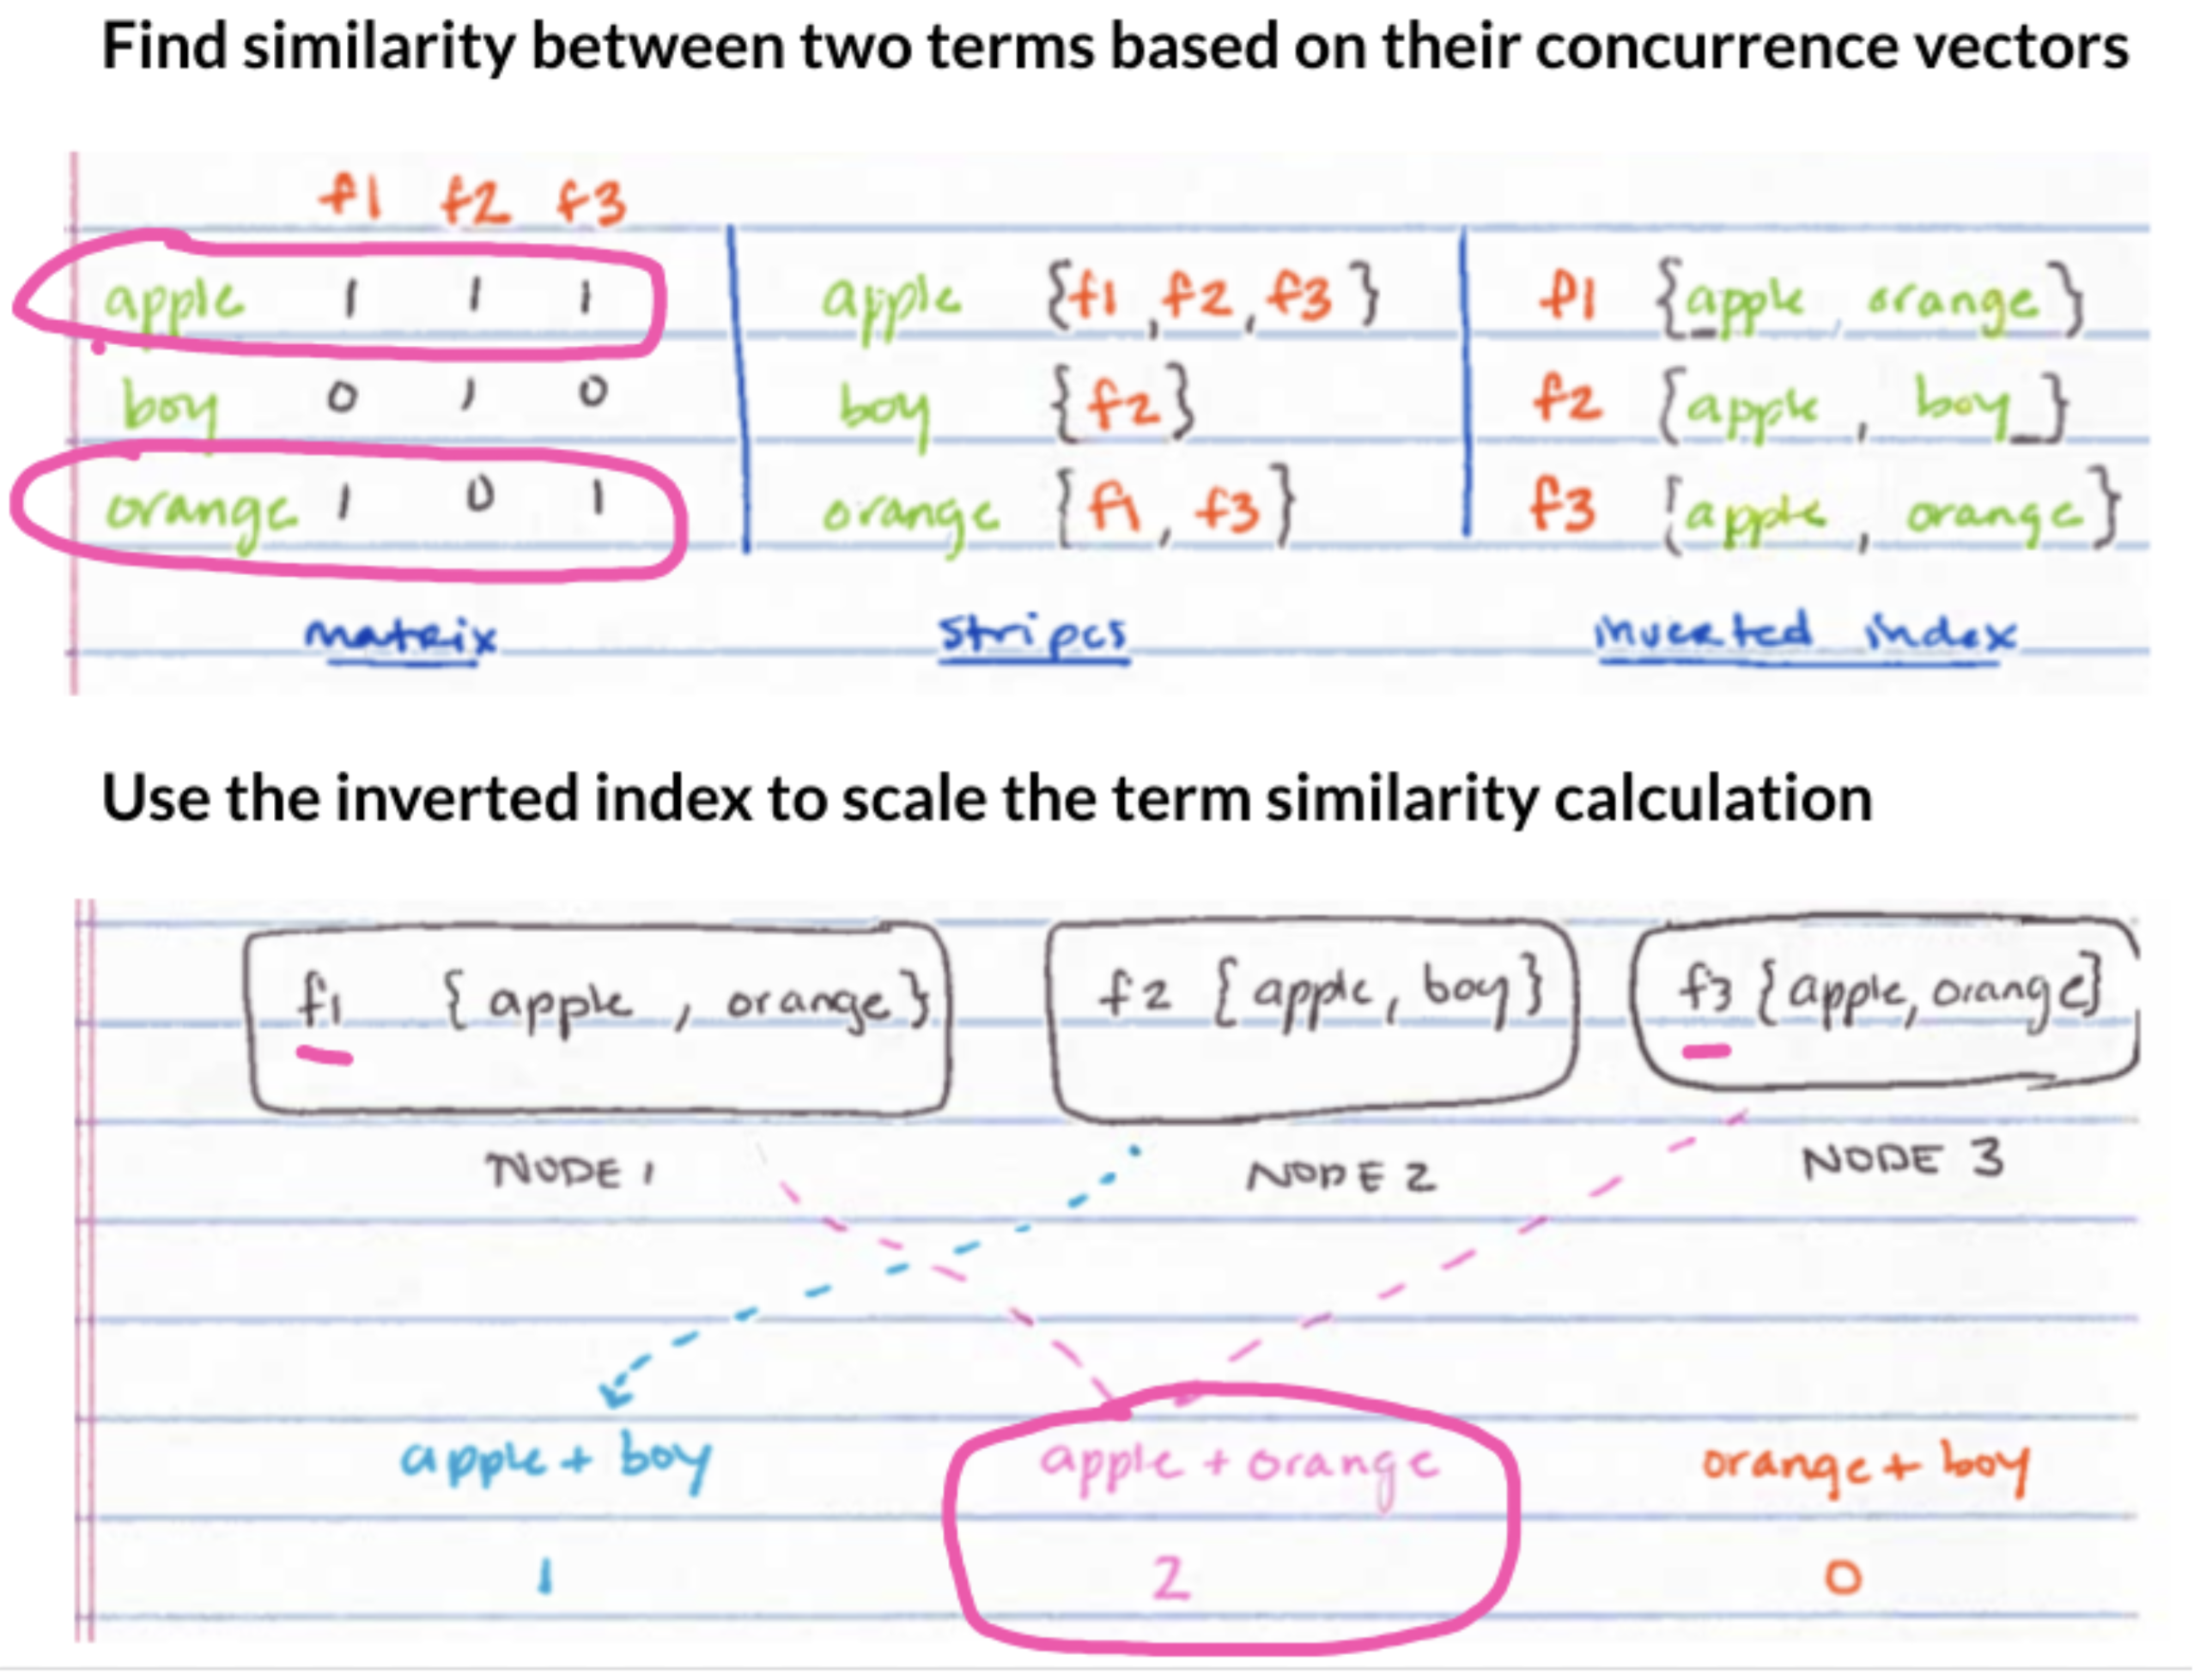 Find similarity between two terms based on their concurrence vectors
f1 f2 f3
apple 1 1 1
boy 0 1 0
orange 1 0 1
matrix
apple {f1, f2, f3}
boy {f2}
orange {f1, f3}
stripes
f1 {apple, orange}
f2 {apple, boy}
f3 {apple, orange}
inverted index
Use the inverted index to scale the term similarity calculation
f1 {apple, orange}
NODE 1
f2 {apple, boy}
NODE 2
f3 {apple, orange}
NODE 3
apple + boy
1
apple + orange
2
orange + boy
0